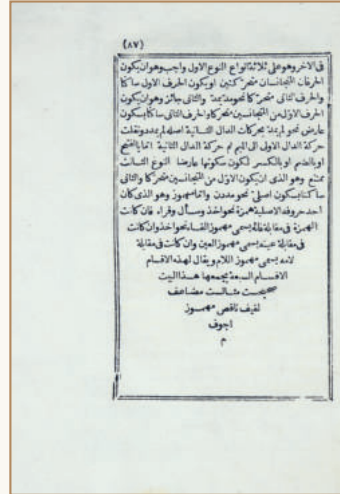 (٨٧)
فى الآخر وهو على ثلاثة انواع النوع الاول واجب وهو ان يكون
الحرفان المتجانسان متحركين او يكون الحرف الاول ساكنا
والحرف الثانى متحركا نحو مد يمد والثانى جائز وهو ان يكون
الحرف الاول من المتجانسين متحركا والحرف الثانى ساكنا بسكون
عارض نحو لم يمد بحركات الدال الثانية اصله لم يمدد ونقلت
حركة الدال الاولى الى الميم ثم حركة الدال الثانية اما بالفتح
او بالضم او بالكسر لكون سكونها عارضا النوع الثالث
ممتنع وهو الذى ان يكون الاول من المتجانسين متحركا والثانى
ساكنا بسكون اصلى نحو مددن واما مهموز وهو الذى كان
احد حروفه الاصلية همزة نحو اخذ وسأل وقراء فان كانت
الهمزة فى مقابلة فائه يسمى مهموز الفاء نحو اخذ وان كانت
فى مقابلة عينه يسمى مهموز العين وان كانت فى مقابلة
لامه يسمى مهموز اللام ويقال لهذه الاقسام
الاقسام السبعة يجمعها هذا البيت
صحيحست مثالست مضاعف
لفيف ناقص مهموز
اجوف
م